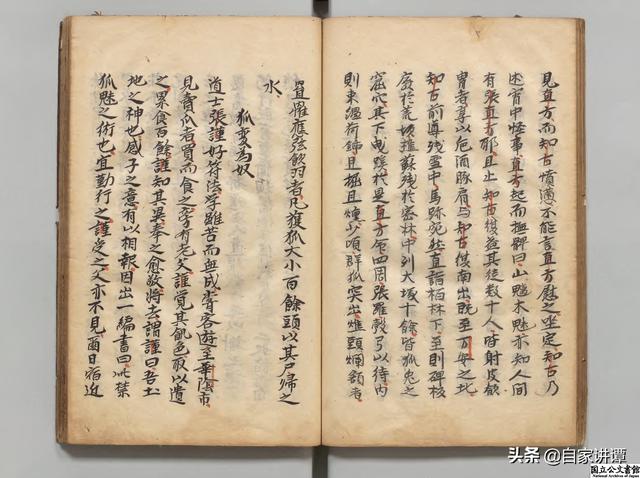 見直方而知古憤懣不能言直方慰之坐定知古乃
述宵中怪事直方起而撫髀曰山魈木魅亦知人間
有張直方耶且止知古復益其徒數十人皆射皮飲
冑者享以卮酒豚肩与知古復南出既至万安之北
知古前導殘雪中馬跡宛然直詣栢林下至則碑板
廢於荒坎樵蘇殘於密林中列大塚十餘皆狐兎之
窟穴其下曳蹤於是直方四周張羅彀弓以待内
則束緼荷鍤且掘且燻少頃群狐突出燋頭爛額者
罝罹應弦飲羽者凡獲狐大小百餘頭以其尸歸之
水
狐変為奴
道士張謹好符法学雖苦而無成嘗客遊至華陰市
見賣瓜者買而食之旁有老父謹覺其飢色取以遺
之累食百餘謹知其異奉之愈敬将去謂謹曰吾土
地之神也感子之意有以相報因出一編書曰此禁
狐魅之術也宜勤行之謹受之父亦不見爾日宿近
头条 @自家讲谭
国立公文書館
National Archives of Japan